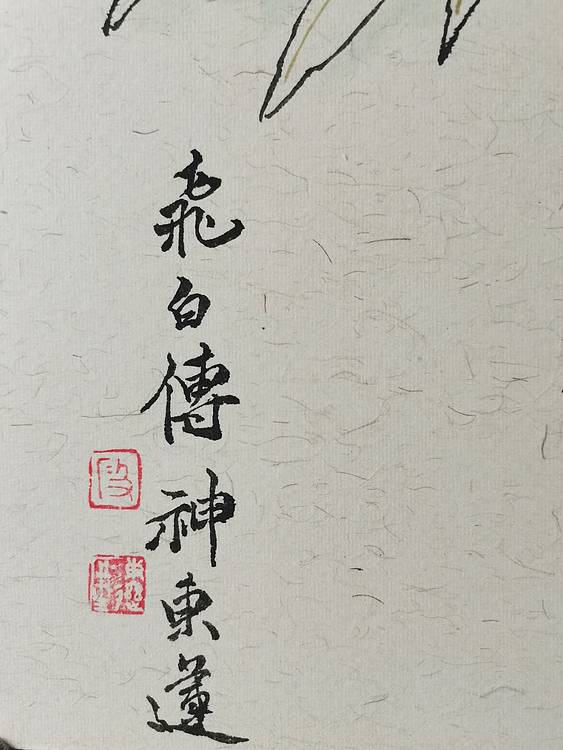 飛白傳神東蓮